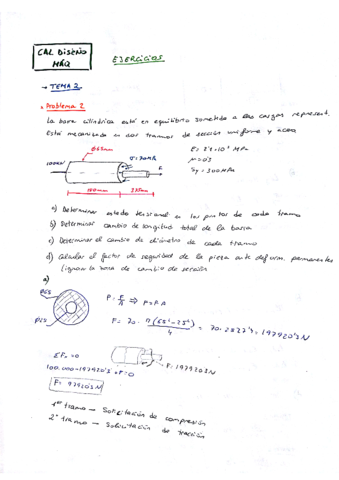 CAL Diseño
MÁQ
EJERCICIOS
→ TEMA 2
• Problema 2
La barra cilíndrica está en equilibrio sometida a las cargas represent.
Está mecanizada en dos tramos de sección uniforme y acero
Ø65mm
σ=70MPa
100KN
F
150mm
E= 2'1·10⁵ MPa
μ=0'3
Sy=300MPa
a) Determinar estado tensional en los puntos de cada tramo
b) Determinar cambio de longitud total de la barra
c) Determinar el cambio de diámetro de cada tramo
d) Calcular el factor de seguridad de la pieza ante deform. permanentes
ignorar la zona de cambio de sección
a)
Ø65
Ø25
ΣF=0
100.000-197920'3+F=0
F= 97920'3N
1er tramo → Solicitación de compresión
2º tramo → Solicitación de tracción